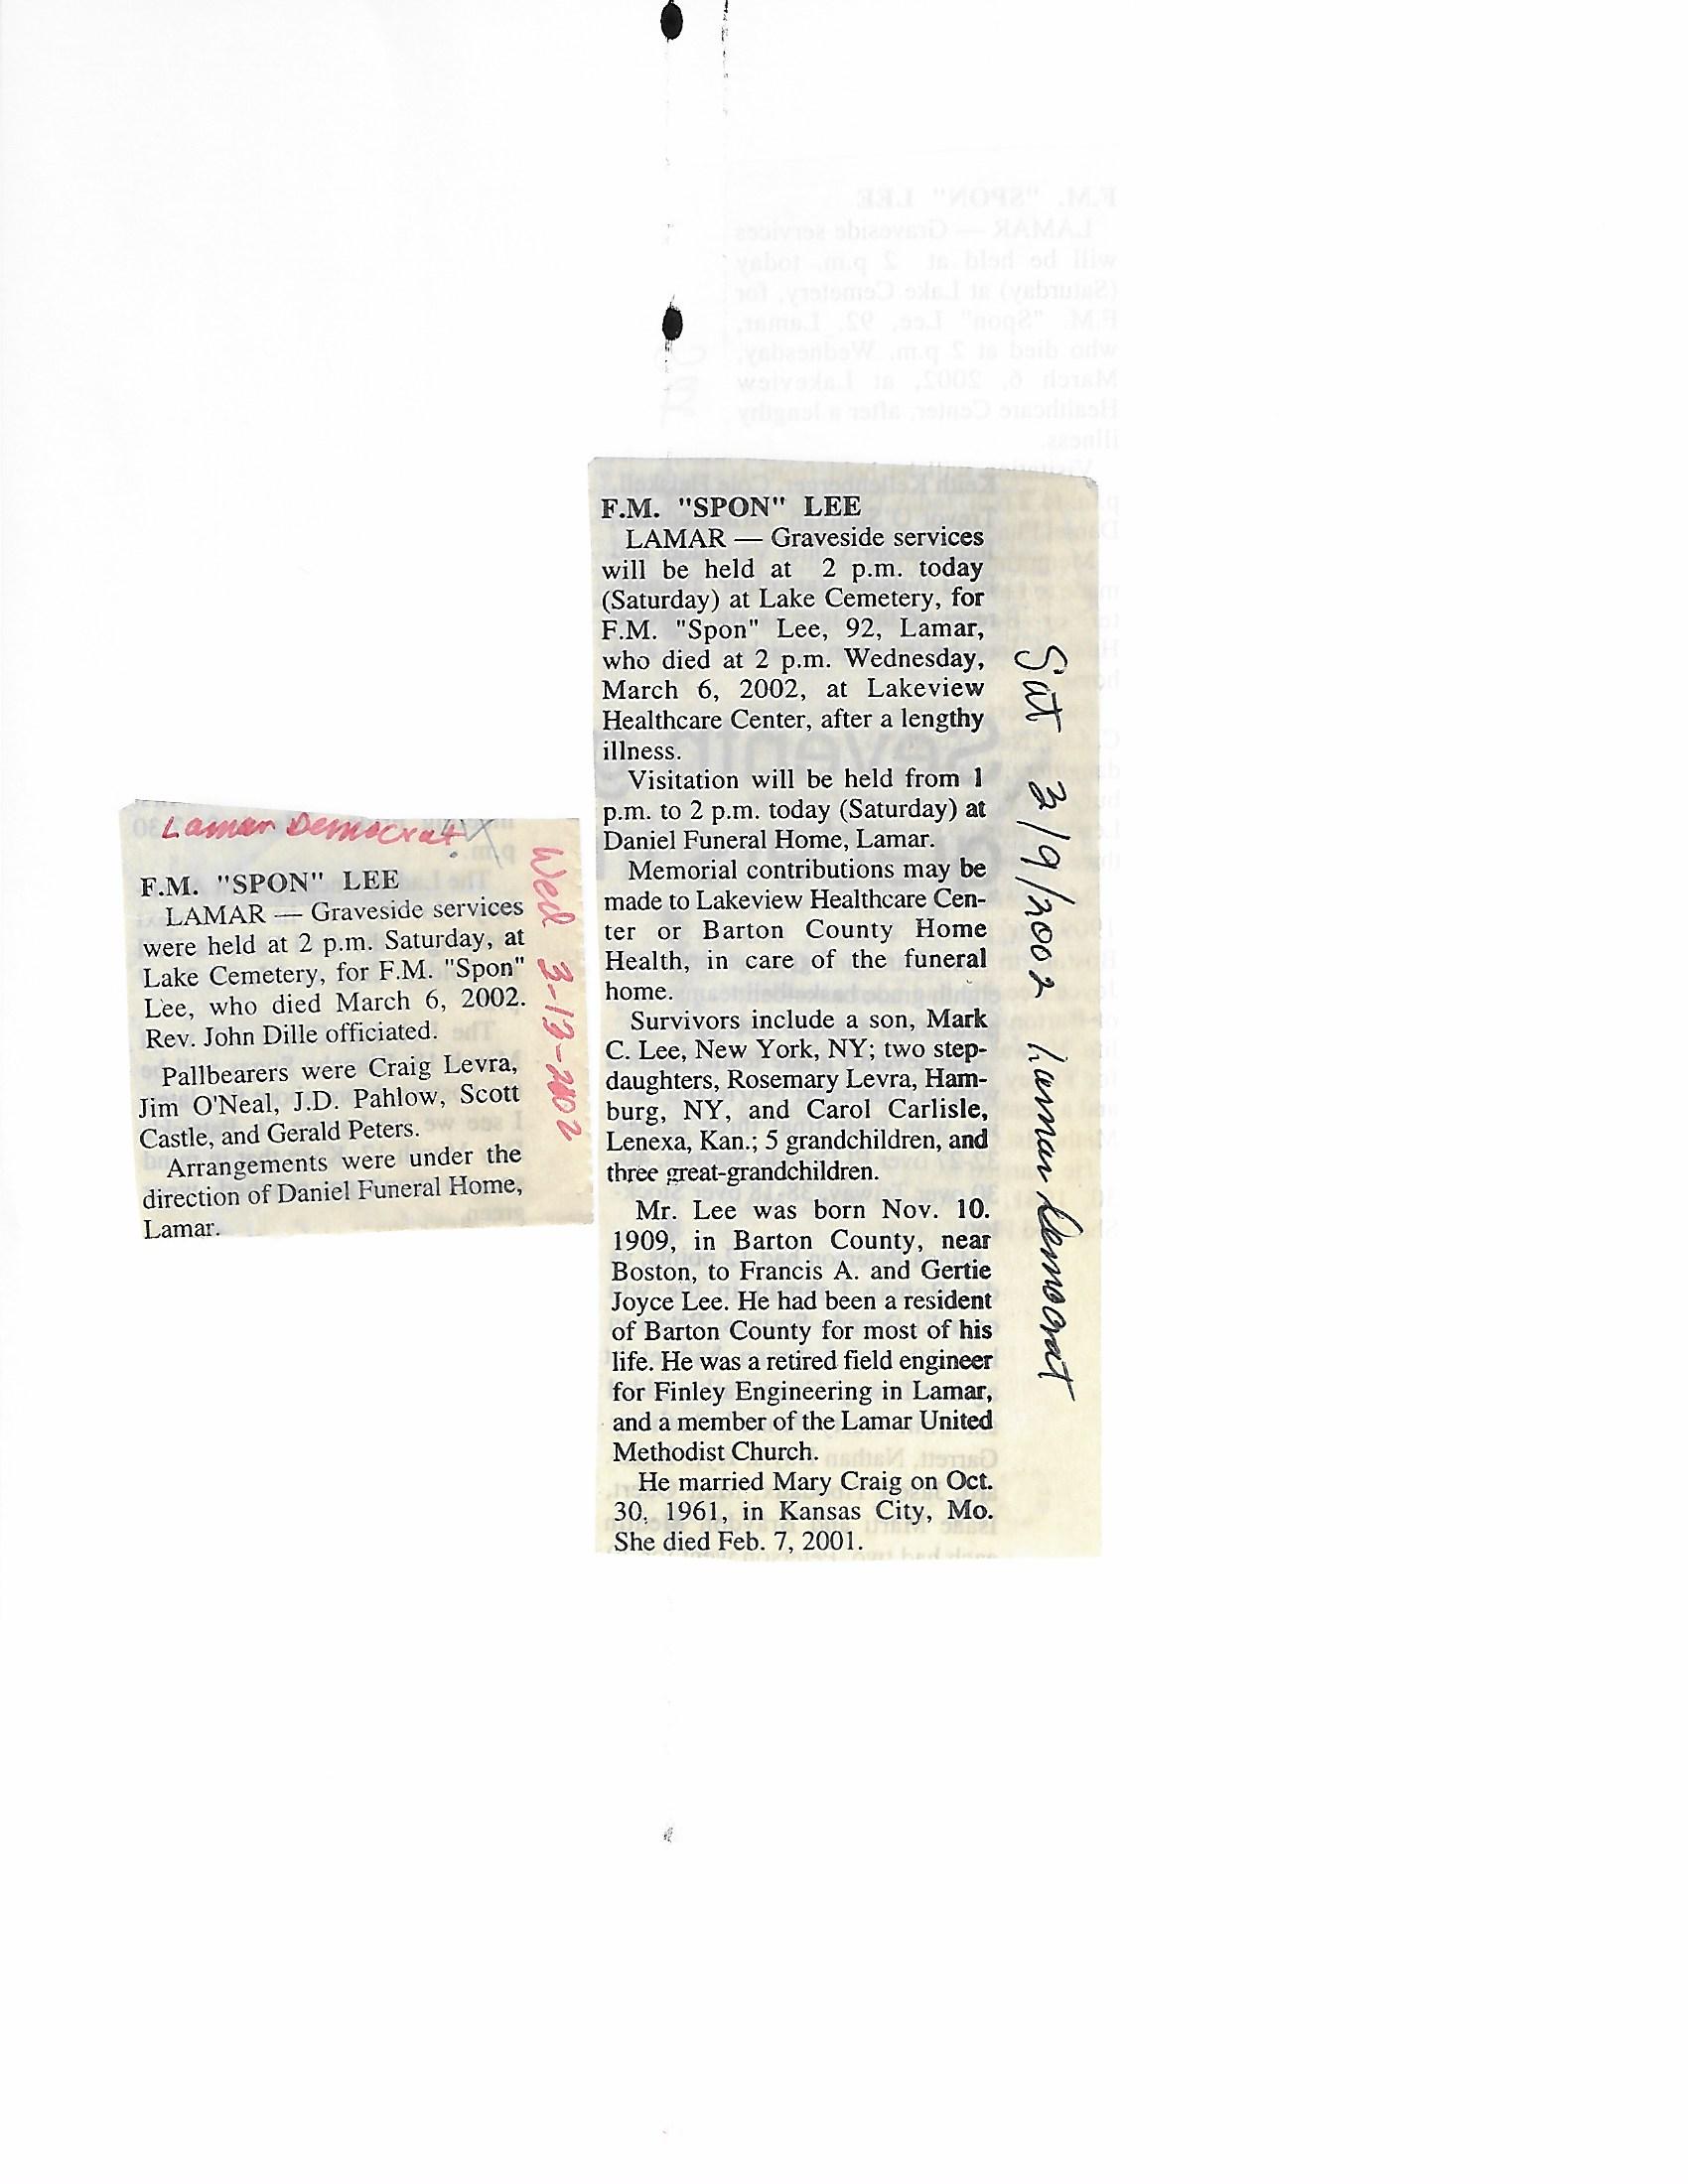 Lamar Democrat
Wed 3-13-2002
F.M. "SPON" LEE
LAMAR — Graveside services
were held at 2 p.m. Saturday, at
Lake Cemetery, for F.M. "Spon"
Lee, who died March 6, 2002.
Rev. John Dille officiated.
Pallbearers were Craig Levra,
Jim O'Neal, J.D. Pahlow, Scott
Castle, and Gerald Peters.
Arrangements were under the
direction of Daniel Funeral Home,
Lamar.
F.M. "SPON" LEE
LAMAR — Graveside services
will be held at 2 p.m. today
(Saturday) at Lake Cemetery, for
F.M. "Spon" Lee, 92, Lamar,
who died at 2 p.m. Wednesday,
March 6, 2002, at Lakeview
Healthcare Center, after a lengthy
illness.
Visitation will be held from 1
p.m. to 2 p.m. today (Saturday) at
Daniel Funeral Home, Lamar.
Memorial contributions may be
made to Lakeview Healthcare Cen-
ter or Barton County Home
Health, in care of the funeral
home.
Survivors include a son, Mark
C. Lee, New York, NY; two step-
daughters, Rosemary Levra, Ham-
burg, NY, and Carol Carlisle,
Lenexa, Kan.; 5 grandchildren, and
three great-grandchildren.
Mr. Lee was born Nov. 10.
1909, in Barton County, near
Boston, to Francis A. and Gertie
Joyce Lee. He had been a resident
of Barton County for most of his
life. He was a retired field engineer
for Finley Engineering in Lamar,
and a member of the Lamar United
Methodist Church.
He married Mary Craig on Oct.
30, 1961, in Kansas City, Mo.
She died Feb. 7, 2001.
Sat 3/9/2002 Lamar Democrat